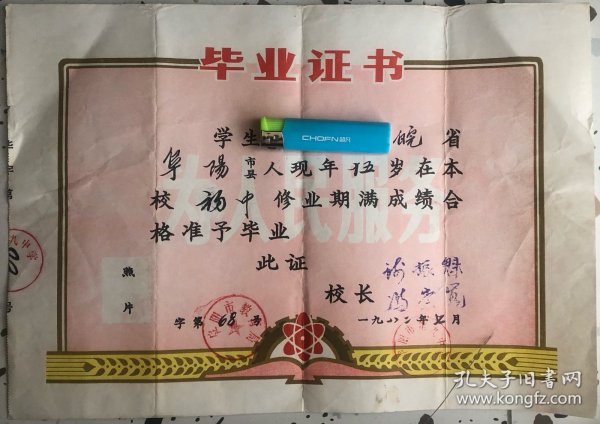 毕业证书
学生 皖省
阜阳市县人现年伍岁在本
校初中修业期满成绩合
格准予毕业
为人民服务
此证
照片
校长
字第68号
一九八二年 月
CHOFN
孔夫子旧书网
www.kongfz.com